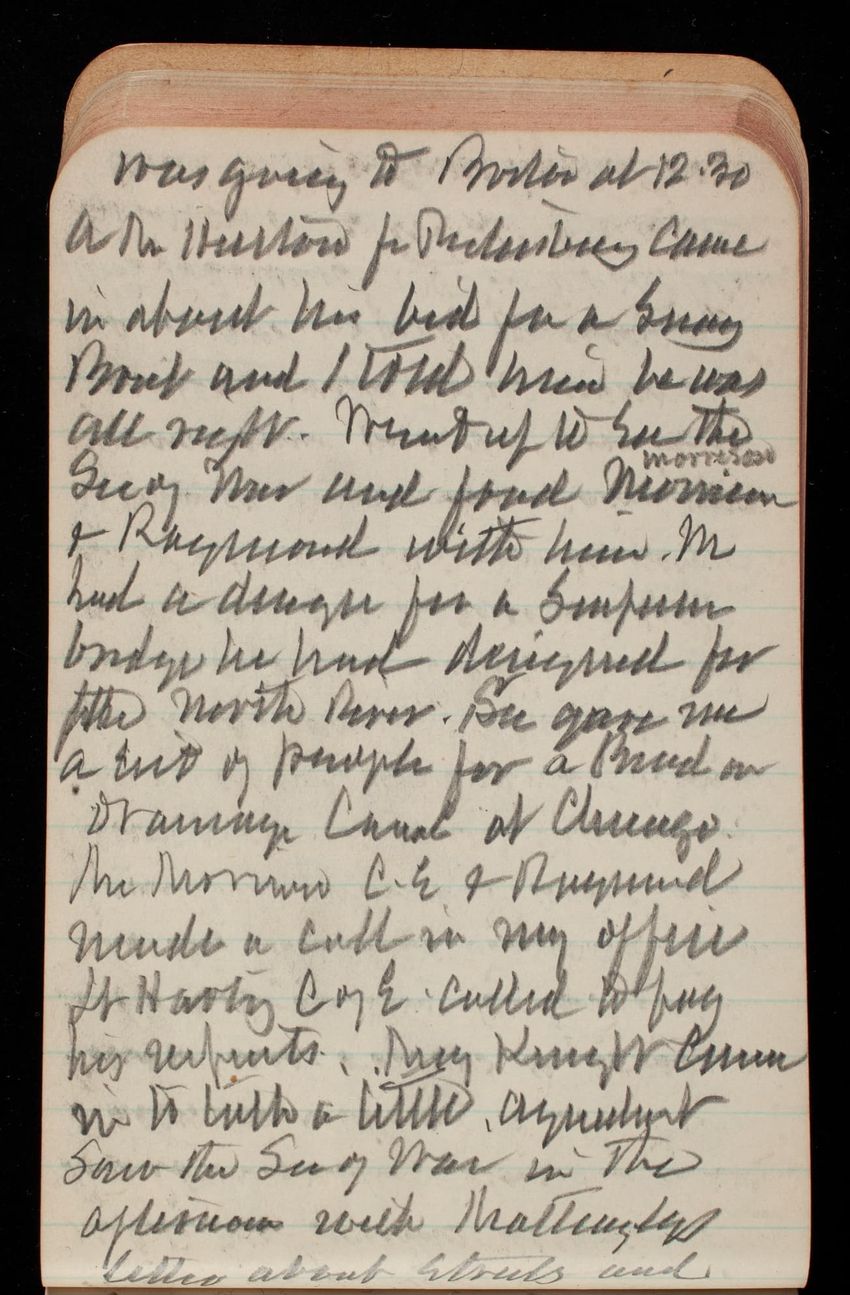 was going to Boston at 12.30
A Mr Huston fr came
in about his bid for a Snag
Boat and I told him he was
all right. Went up to See the
morrison
Secy War and found Morrison
& Raymond with him. M
had a design for a Suspension
bridge he had designed for
the North River. Sec gave me
a list of people for a Board on
Drainage Canal at Chicago.
Mr Morrison C.E & Raymond
made a call in my office
Lt Harts C of E. called to pay
his respects. Maj Knight came
in to talk a little.
Saw the Sec of War in the
afternoon with Mattinglys
letter about Streets and